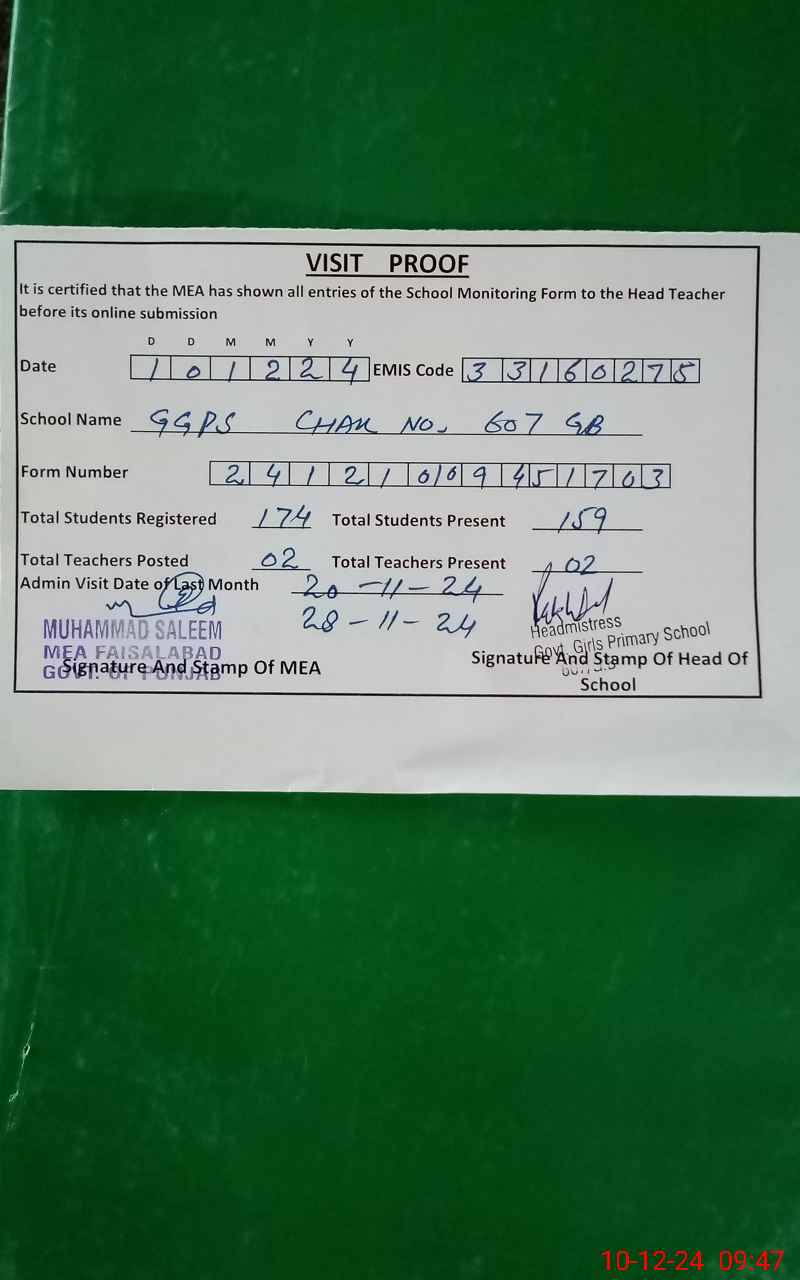 VISIT PROOF
It is certified that the MEA has shown all entries of the School Monitoring Form to the Head Teacher
before its online submission
D D M M Y Y
Date 1 0 1 2 2 4 EMIS Code 3 3 1 6 0 2 7 5
School Name GGPS CHAK NO. 607 GB
Form Number 2 4 1 2 1 0 0 9 4 5 1 7 0 3
Total Students Registered 174 Total Students Present 159
Total Teachers Posted 02 Total Teachers Present 02
Admin Visit Date of Last Month 20-11-24
28-11-24
MUHAMMAD SALEEM
MEA FAISALABAD
GOVT. OF PUNJAB
Signature And Stamp Of MEA
Headmistress
Govt. Girls Primary School
Signature And Stamp Of Head Of
School
10-12-24 09:47